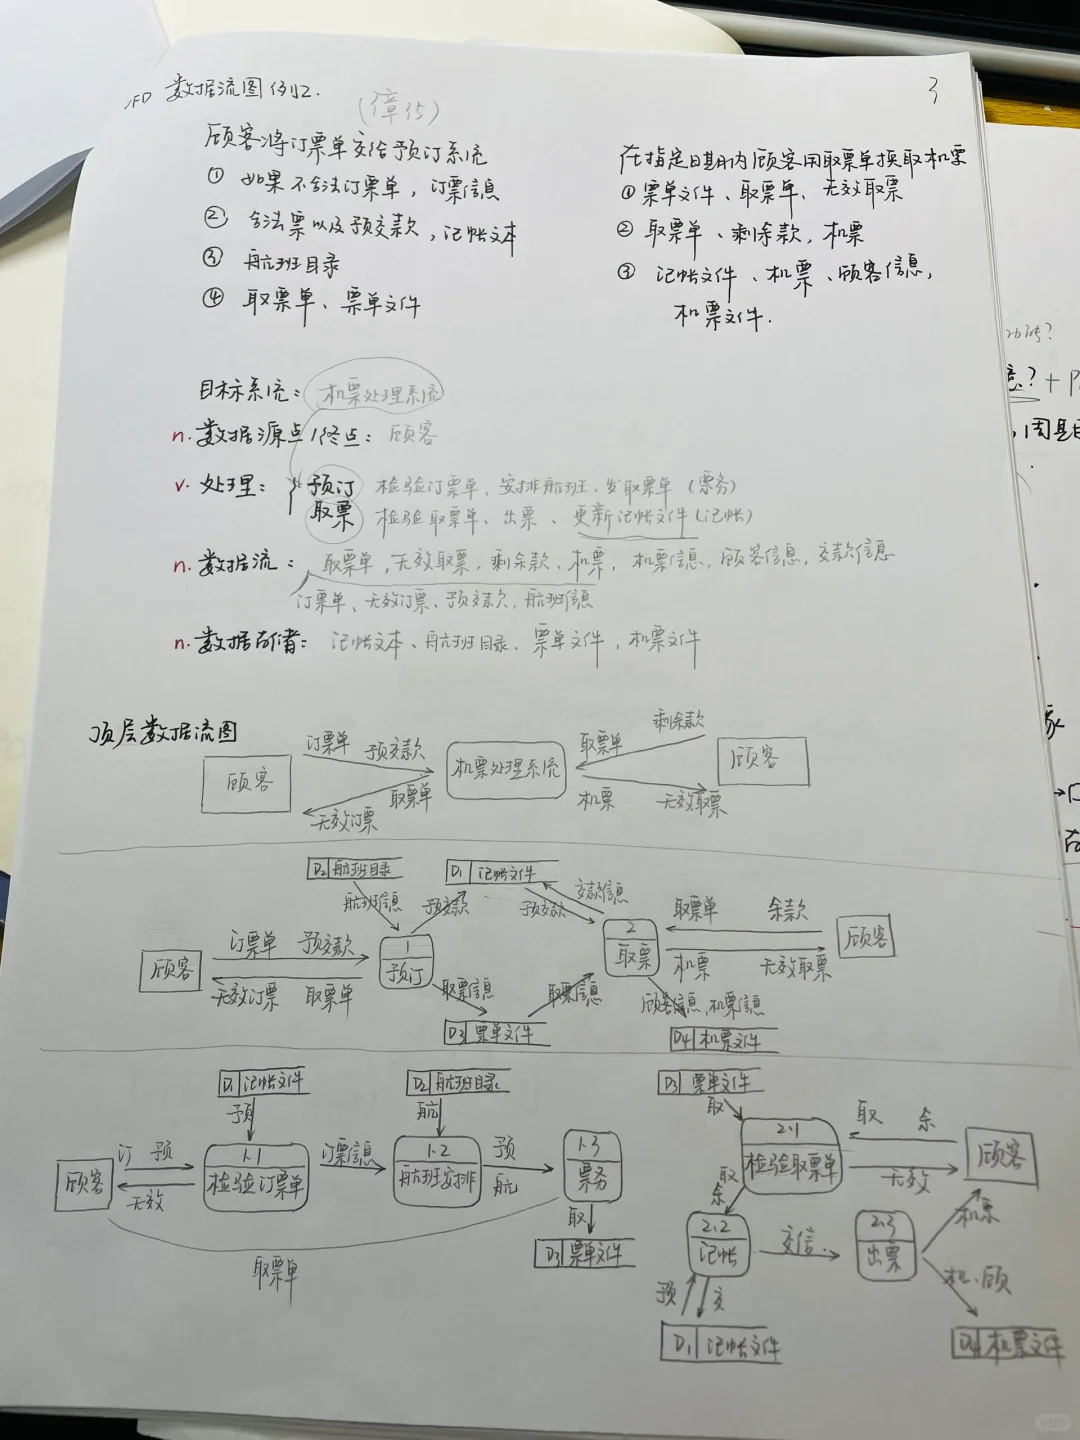 DFD 数据流图例2.
3
顾客将订票单交给预订系统
① 如果不合法订票单，订票信息
② 合法票以及预交款，记帐文本
③ 航班目录
④ 取票单、票单文件
在指定日期内顾客用取票单换取机票
① 票单文件、取票单、无效取票
② 取票单、剩余款，机票
③ 记帐文件、机票、顾客信息，
机票文件.
目标系统： 机票处理系统
n. 数据源点/终点： 顾客
v. 处理： 预订 检验订票单、安排航班、发取票单（票务）
取票 检验取票单、出票、更新记帐文件（记帐）
n. 数据流： 取票单，无效取票，剩余款、机票，机票信息，顾客信息，交款信息
订票单、无效订票、预交款，航班信息
n. 数据存储： 记帐文本、航班目录、票单文件，机票文件
顶层数据流图
顾客
订票单 预交款
取票单
无效订票
机票处理系统
取票单
剩余款
机票
无效取票
顾客
D2 航班目录
D1 记帐文件
航班信息
预交款
预交款
交款信息
顾客
订票单 预交款
无效订票 取票单
1
预订
2
取票
取票单 余款
机票 无效取票
顾客
取票信息
取票信息
顾客信息，机票信息
D3 票单文件
D4 机票文件
D1 记帐文件
预
D2 航班目录
航
顾客
订 预
无效
1.1
检验订票单
订票信息
1.2
航班安排
预
航
1.3
票务
取
D3 票单文件
取票单
D3 票单文件
取
2.1
检验取票单
取 余
无效
顾客
取
余
2.2
记帐
交信
2.3
出票
机票
机、顾
预
交
D1 记帐文件
D4 机票文件